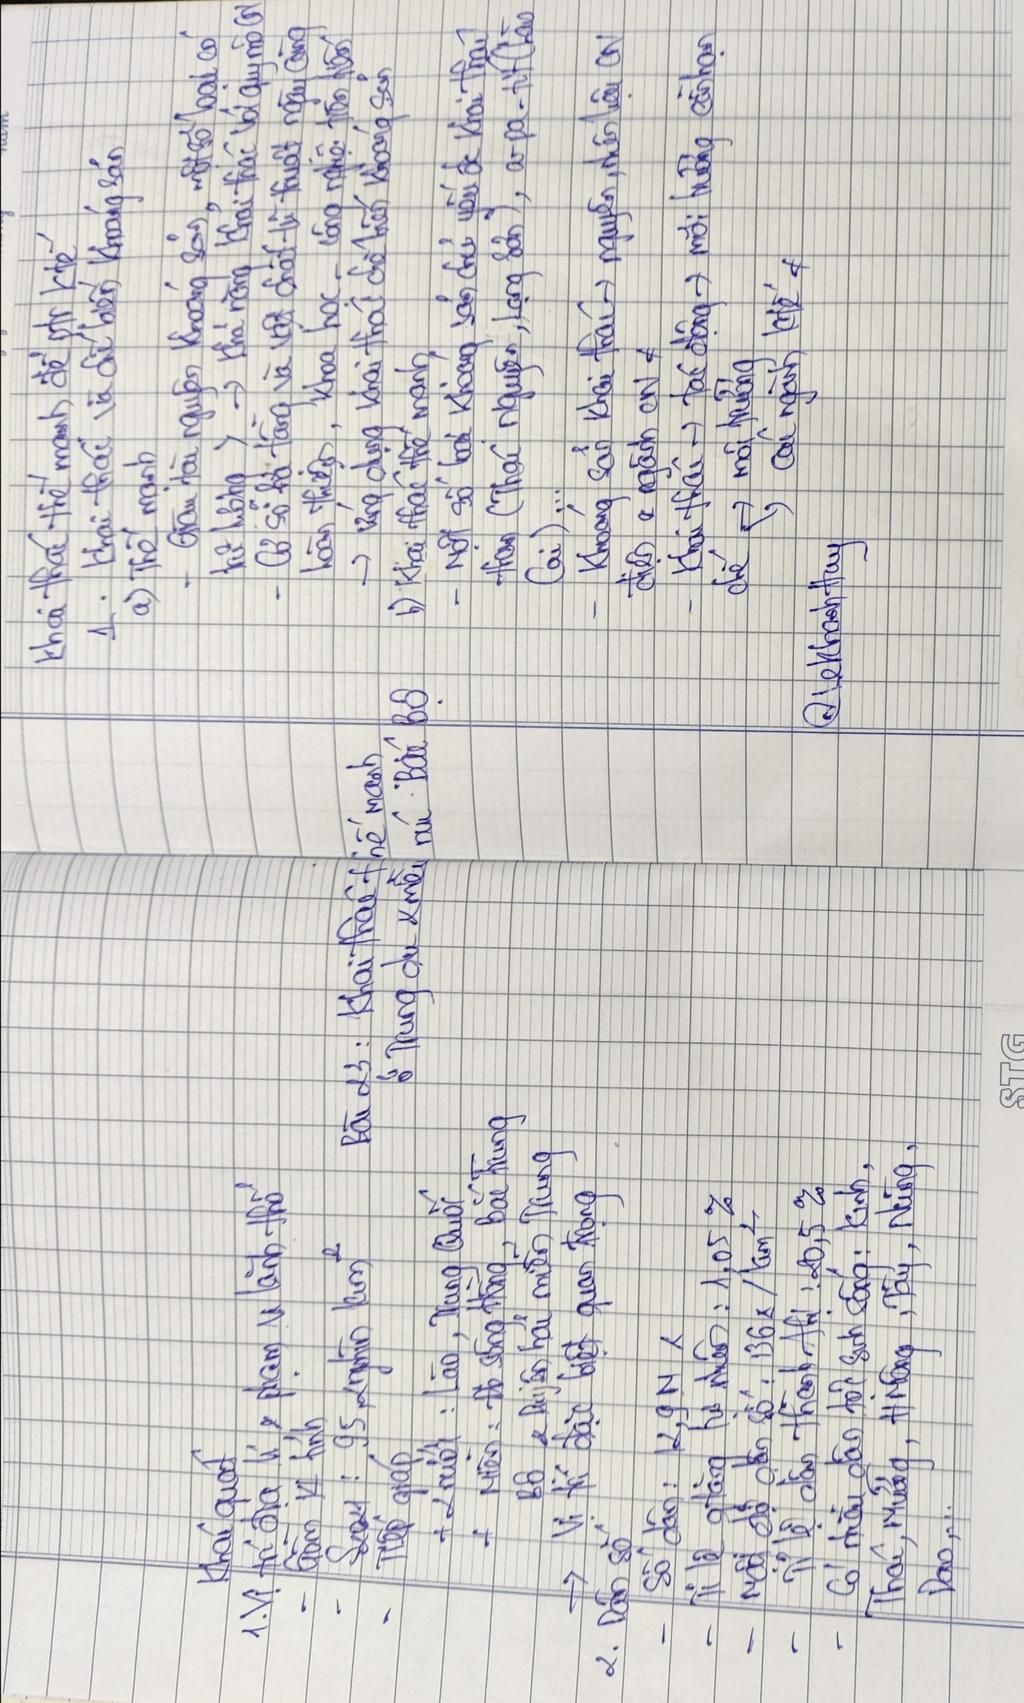 Khái quát
1. Vị trí địa lí & phạm vi lãnh thổ
- Gồm tỉnh
- : 95,2 nghìn km²
- Tiếp giáp
+ 2 nước : Lào, Trung Quốc
+ Miền : sông Hồng, Bắc Trung
Bộ & Duyên hải miền Trung
→ Vị trí đặc biệt quan trọng
2. Dân số
- Số dân : 12,9 N
- Tỉ lệ tăng tự nhiên : 1,05 %
- Mật độ dân số : 136 / km²
- Tỉ lệ dân thành thị : 20,5 %
- Có nhiều dân tộc sinh sống : Kinh,
Thái, Mường, HMông, Tày, Nùng,
Dao,...
Bài 23 : Khai thác thế mạnh
ở Trung du & miền núi Bắc Bộ
STG
Khai thác thế mạnh để ptr ktế
1. Khai thác và chế biến khoáng sản
a) Thế mạnh
- Giàu tài nguyên khoáng sản, một số loại có
trữ lượng > → khả năng khai thác với quy mô CN
- Cơ sở hạ tầng và vật chất - kĩ thuật ngày càng
hoàn thiện, khoa học - công nghệ tiến
→ ứng dụng khai thác chế biến khoáng sản
b) Khai thác thế mạnh
- Một số loại khoáng sản chủ yếu đc khai thác
than (Thái Nguyên, Lạng Sơn), a-pa-tit (Lào
Cai),...
- Khoáng sản khai thác → nguyên, nhiên liệu CN
điện & ngành CN ≠
- Khai thác → tác động → môi trường cần hạn
chế → môi trường
→ các ngành ktế ≠
@lekhanhhuy